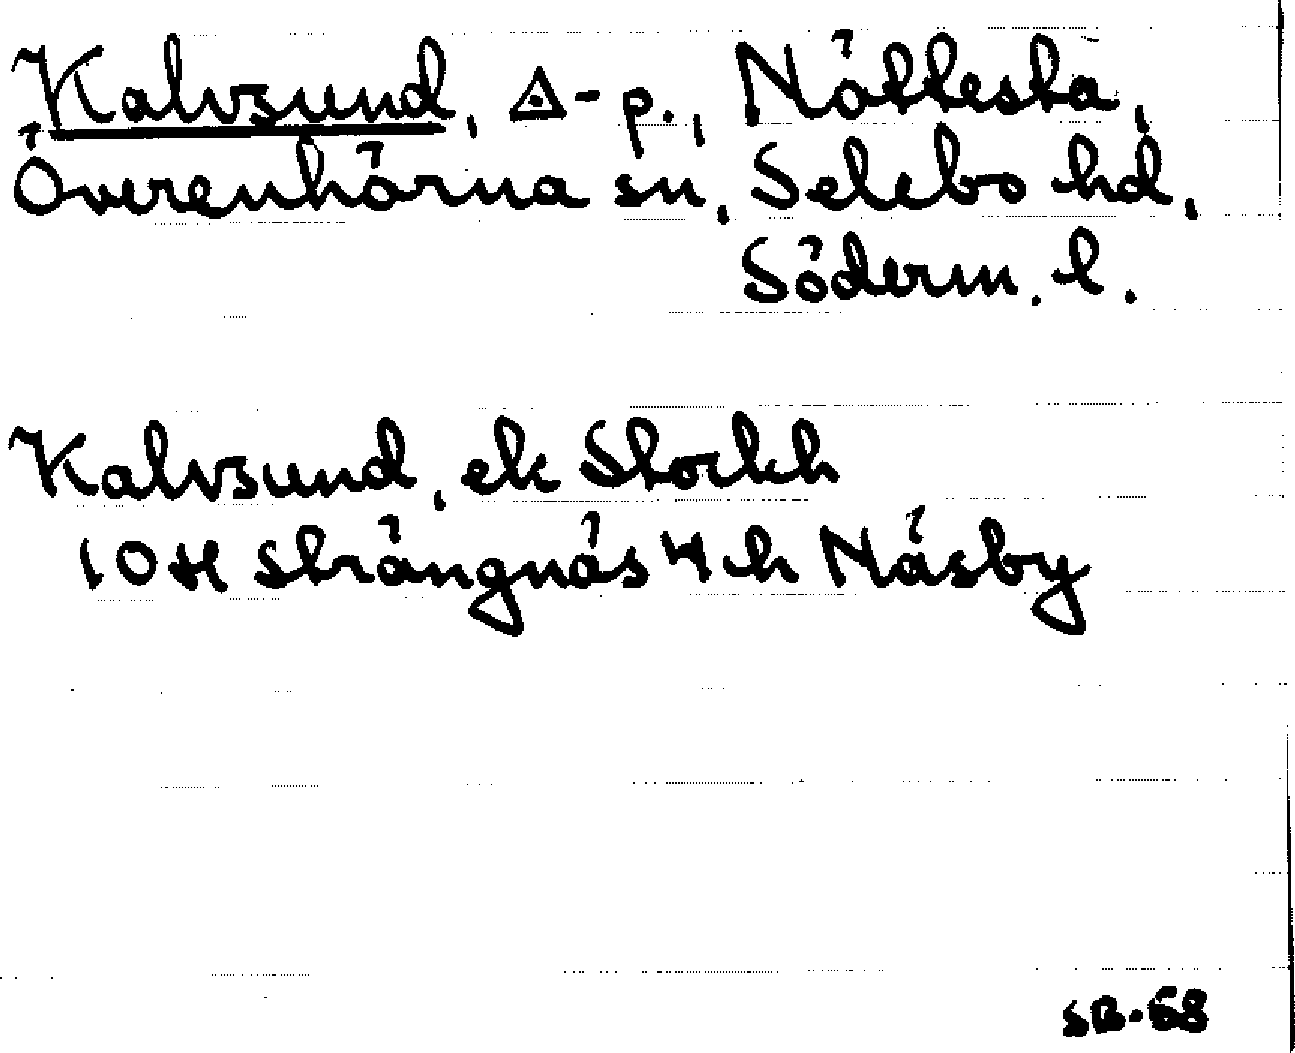 Kalvsund, ◬-p., Nöttesta,
Överenhörna sn, Selebo hd,
Söderm. l.
Kalvsund, ek Stockh
10H Strängnäs 4h Näsby
SB-68